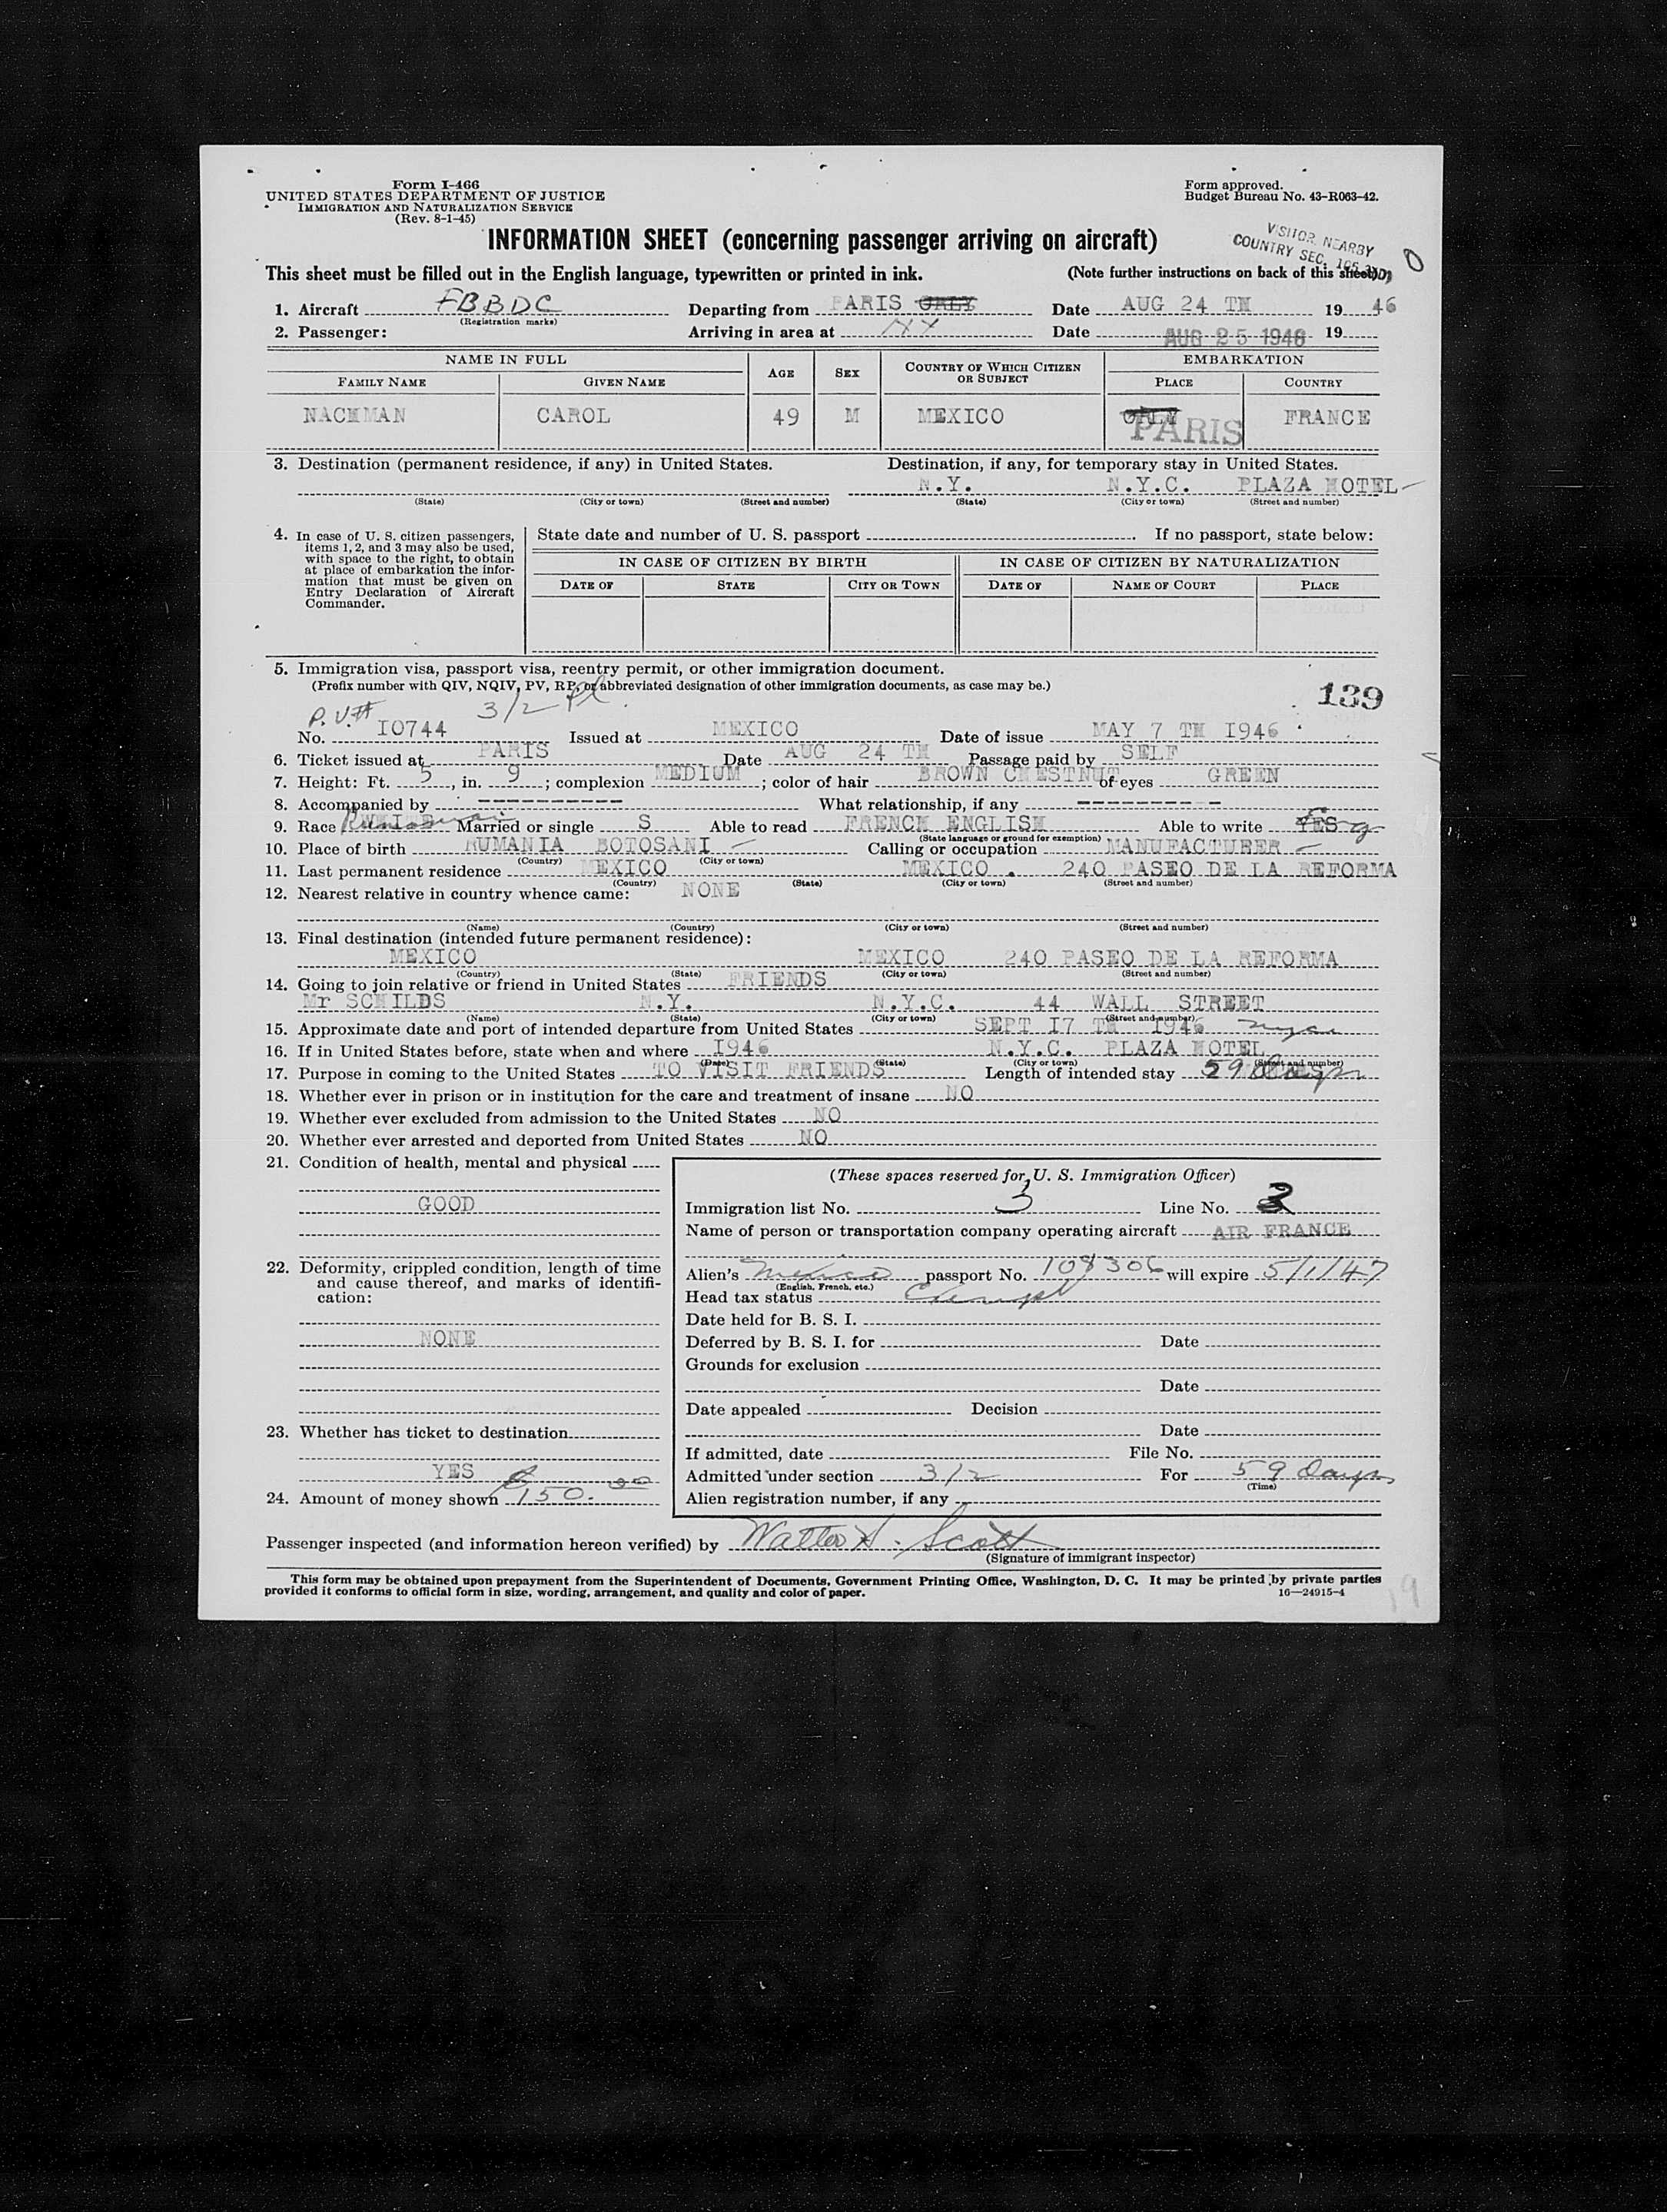 Form I-466
UNITED STATES DEPARTMENT OF JUSTICE
IMMIGRATION AND NATURALIZATION SERVICE
(Rev. 8-1-45)
Form approved.
Budget Bureau No. 43-R063-42.
INFORMATION SHEET (concerning passenger arriving on aircraft)
VISITOR NEARBY
COUNTRY SEC.
This sheet must be filled out in the English language, typewritten or printed in ink. (Note further instructions on back of this sheet)
1. Aircraft FBBDC Departing from PARIS ORLY Date AUG 24 TH 19 46
(Registration marks)
2. Passenger: Arriving in area at NY Date AUG 25 1946 19
NAME IN FULL AGE SEX COUNTRY OF WHICH CITIZEN OR SUBJECT EMBARKATION
FAMILY NAME GIVEN NAME PLACE COUNTRY
NACHMAN CAROL 49 M MEXICO ORLY PARIS FRANCE
3. Destination (permanent residence, if any) in United States. Destination, if any, for temporary stay in United States.
N.Y. N.Y.C. PLAZA HOTEL
(State) (City or town) (Street and number) (State) (City or town) (Street and number)
4. In case of U. S. citizen passengers,
items 1, 2, and 3 may also be used,
with space to the right, to obtain
at place of embarkation the infor-
mation that must be given on
Entry Declaration of Aircraft
Commander.
State date and number of U. S. passport . If no passport, state below:
IN CASE OF CITIZEN BY BIRTH IN CASE OF CITIZEN BY NATURALIZATION
DATE OF STATE CITY OR TOWN DATE OF NAME OF COURT PLACE
5. Immigration visa, passport visa, reentry permit, or other immigration document.
(Prefix number with QIV, NQIV, PV, RP, or abbreviated designation of other immigration documents, as case may be.)
139
P.V.# 3/2 Pl.
No. I0744 Issued at MEXICO Date of issue MAY 7 TH I946
6. Ticket issued at PARIS Date AUG 24 TH Passage paid by SELF
7. Height: Ft. 5, in. 9; complexion MEDIUM; color of hair BROWN CHESTNUT of eyes GREEN
8. Accompanied by ---------- What relationship, if any ----------
9. Race WHITE Married or single S Able to read FRENCH ENGLISH Able to write YES
(State language or ground for exemption)
10. Place of birth RUMANIA BOTOSANI Calling or occupation MANUFACTURER
(Country) (City or town)
11. Last permanent residence MEXICO MEXICO . 240 PASEO DE LA REFORMA
(Country) (State) (City or town) (Street and number)
12. Nearest relative in country whence came: NONE
(Name) (Country) (City or town) (Street and number)
13. Final destination (intended future permanent residence):
MEXICO MEXICO 240 PASEO DE LA REFORMA
(Country) (State) (City or town) (Street and number)
14. Going to join relative or friend in United States FRIENDS
Mr SCHILDS N.Y. N.Y.C. 44 WALL STREET
(Name) (State) (City or town) (Street and number)
15. Approximate date and port of intended departure from United States SEPT I7 TH I946
16. If in United States before, state when and where I946 N.Y.C. PLAZA HOTEL
(Date) (State) (City or town) (Street and number)
17. Purpose in coming to the United States TO VISIT FRIENDS Length of intended stay 59 Days
18. Whether ever in prison or in institution for the care and treatment of insane NO
19. Whether ever excluded from admission to the United States NO
20. Whether ever arrested and deported from United States NO
21. Condition of health, mental and physical
GOOD
22. Deformity, crippled condition, length of time
and cause thereof, and marks of identifi-
cation:
NONE
23. Whether has ticket to destination
YES
24. Amount of money shown 150.00
(These spaces reserved for U. S. Immigration Officer)
Immigration list No. 3 Line No. 3
Name of person or transportation company operating aircraft AIR FRANCE
Alien's Mexico passport No. 108306 will expire 5/1/47
(English, French, etc.)
Head tax status Exempt
Date held for B. S. I.
Deferred by B. S. I. for Date
Grounds for exclusion
Date
Date appealed Decision
Date
If admitted, date File No.
Admitted under section 3/2 For 59 Days
(Time)
Alien registration number, if any
Passenger inspected (and information hereon verified) by Walter H. Scott
(Signature of immigrant inspector)
This form may be obtained upon prepayment from the Superintendent of Documents, Government Printing Office, Washington, D. C. It may be printed by private parties
provided it conforms to official form in size, wording, arrangement, and quality and color of paper. 16—24915-4
19